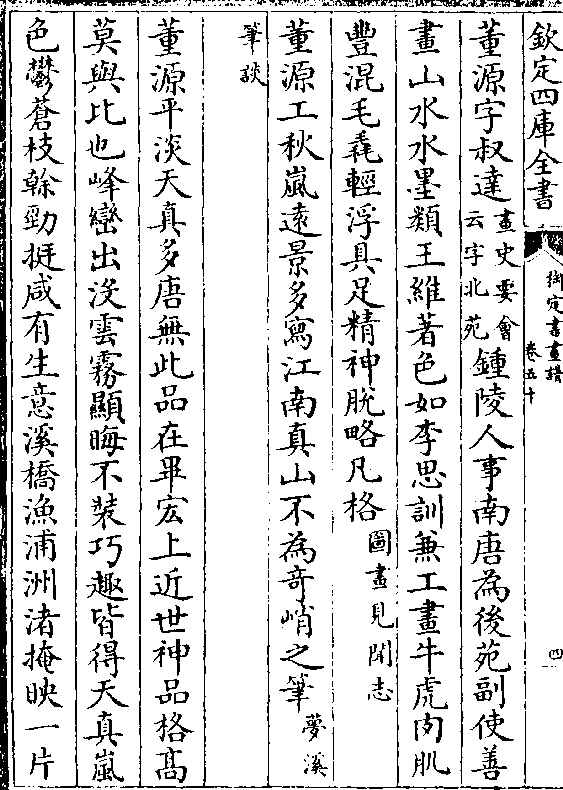 欽定四庫全書
御定書畫譜
卷五十
四
董源字叔達畫史要會云字北苑鍾陵人事南唐為後苑副使善
畫山水水墨類王維著色如李思訓兼工畫牛虎肉肌
豐混毛毳輕浮具足精神脫略凡格圖畫見聞志
董源工秋嵐遠景多寫江南真山不為奇峭之筆夢溪
筆談
董源平淡天真多唐無此品在畢宏上近世神品格高
莫與比也峰巒出沒雲霧顯晦不裝巧趣皆得天真嵐
色鬱蒼枝榦勁挺咸有生意溪橋漁浦洲渚掩映一片